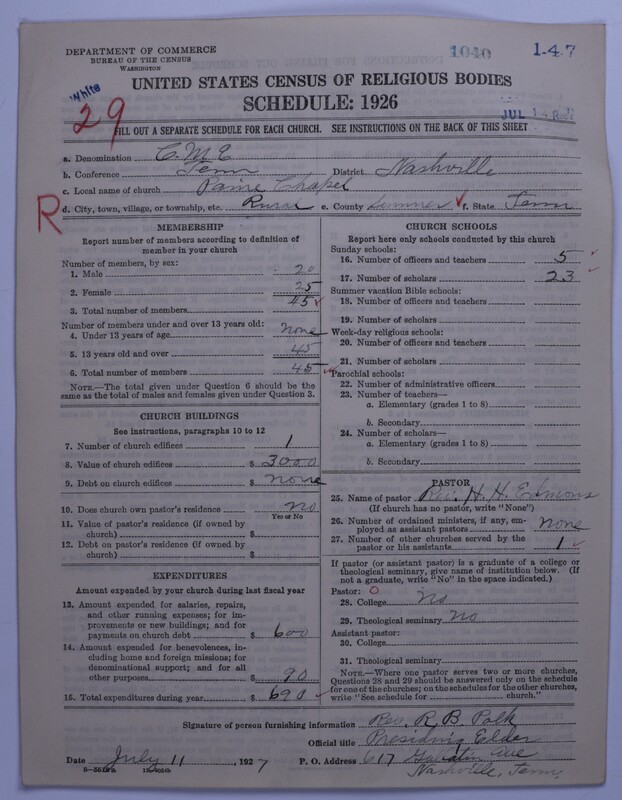 DEPARTMENT OF COMMERCE
BUREAU OF THE CENSUS
WASHINGTON
1040
1-4-7
UNITED STATES CENSUS OF RELIGIOUS BODIES
SCHEDULE: 1926
White
29
JUL
FILL OUT A SEPARATE SCHEDULE FOR EACH CHURCH. SEE INSTRUCTIONS ON THE BACK OF THIS SHEET
a. Denomination C. M. E
b. Conference Tenn District Nashville
c. Local name of church Paine Chapel
R
d. City, town, village, or township, etc. Rural e. County Sumner f. State Tenn
MEMBERSHIP
Report number of members according to definition of
member in your church
Number of members, by sex:
1. Male 20
2. Female 25
3. Total number of members 45
Number of members under and over 13 years old:
4. Under 13 years of age none
5. 13 years old and over 45
6. Total number of members 45
NOTE.—The total given under Question 6 should be
same as the total of males and females given under Question 3.
CHURCH BUILDINGS
See instructions, paragraphs 10 to 12
7. Number of church edifices 1
8. Value of church edifices $ 3000
9. Debt on church edifices $ none
10. Does church own pastor's residence? no
Yes or No
11. Value of pastor's residence (if owned by
church) $
12. Debt on pastor's residence (if owned by
church) $
EXPENDITURES
Amount expended by your church during last fiscal year
13. Amount expended for salaries, repairs,
and other running expenses; for im-
provements or new buildings; and for
payments on church debt $ 600
14. Amount expended for benevolences, in-
cluding home and foreign missions; for
denominational support; and for all
other purposes $ 90
15. Total expenditures during year $ 690
CHURCH SCHOOLS
Report here only schools conducted by this church
Sunday schools:
16. Number of officers and teachers 5
17. Number of scholars 23
Summer vacation Bible schools:
18. Number of officers and teachers
19. Number of scholars
Week-day religious schools:
20. Number of officers and teachers
21. Number of scholars
Parochial schools:
22. Number of administrative officers
23. Number of teachers—
a. Elementary (grades 1 to 8)
b. Secondary
24. Number of scholars—
a. Elementary (grades 1 to 8)
b. Secondary
PASTOR
25. Name of pastor Rev. H. H. Edmons
(If church has no pastor, write "None")
26. Number of ordained ministers, if any, em-
ployed as assistant pastors none
27. Number of other churches served by the
pastor or his assistants 1
If pastor (or assistant pastor) is a graduate of a college or
theological seminary, give name of institution below. (If
not a graduate, write "No" in the space indicated.)
Pastor: 0
28. College no
29. Theological seminary no
Assistant pastor:
30. College
31. Theological seminary
NOTE.—Where one pastor serves two or more churches,
Questions 28 and 29 should be answered only on the schedule
for one of the churches; on the schedules for the other churches,
write "See schedule for church."
Signature of person furnishing information Rev. R. B. Polk
Official title Presiding Elder
Date July 11, 1927 P. O. Address 617 Gallatin Ave
Nashville, Tenn.